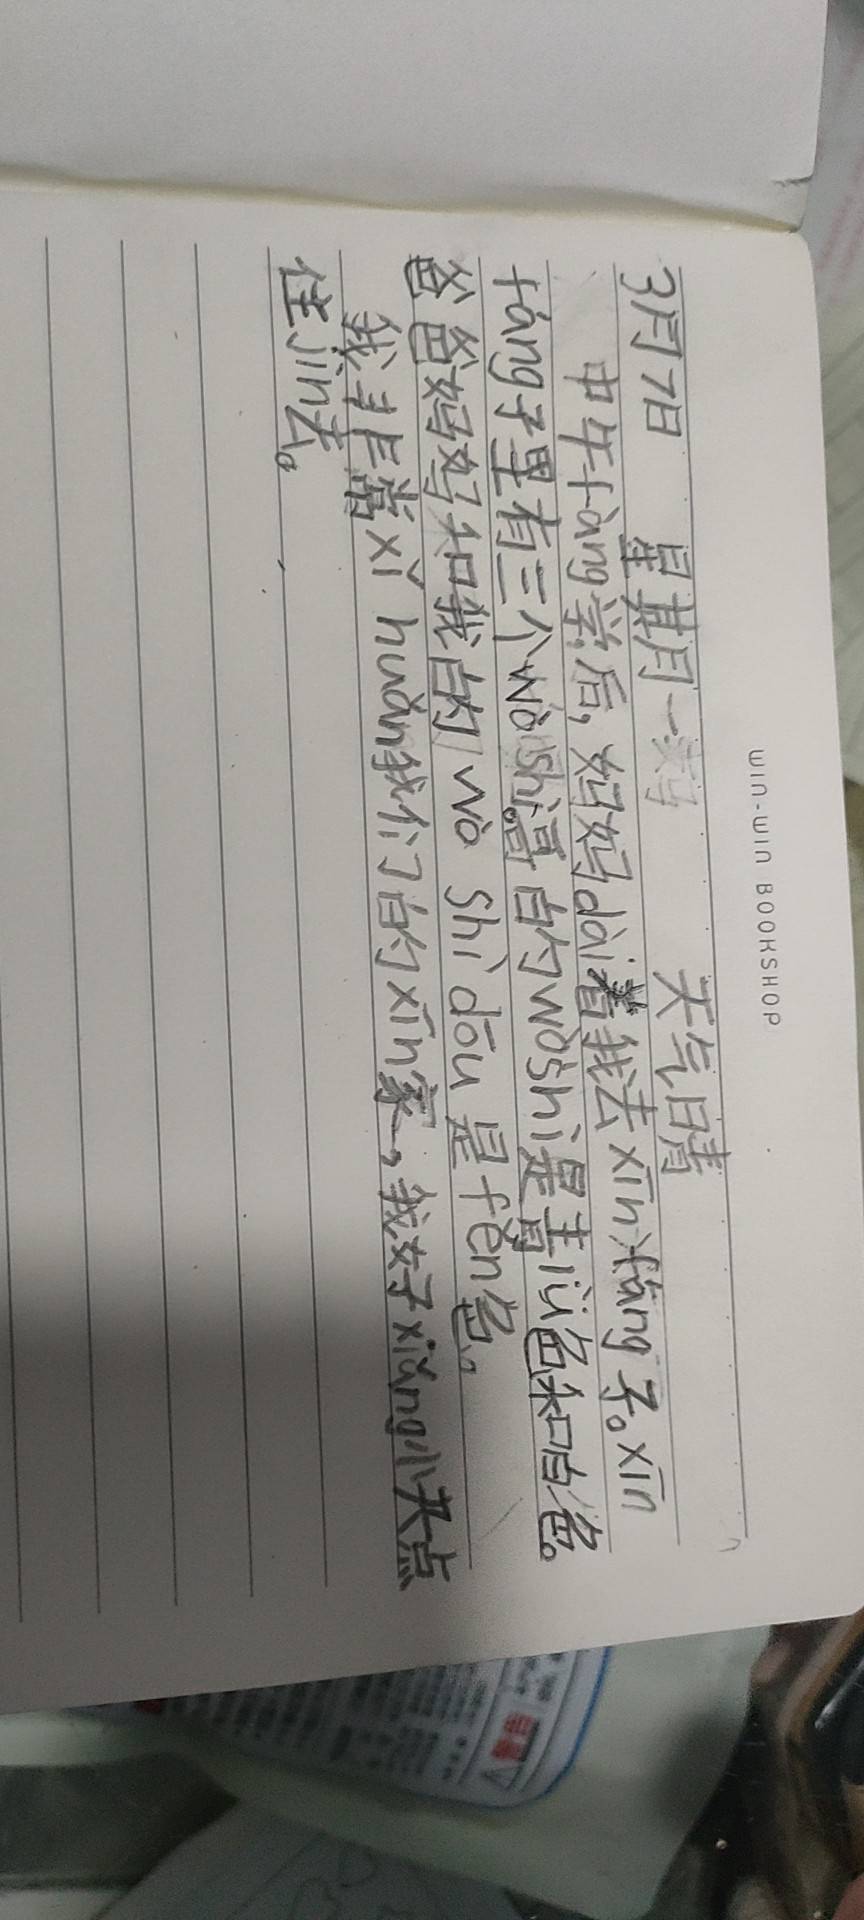 WIN-WIN BOOKSHOP
3月7日 星期一 天气晴
中午fàng学后，妈妈dài着我去xīn fáng子。xīn
fáng子里有三个wò shì。哥的wò shì是青lǜ色和白色。
爸爸妈妈和我的 wò shì dōu是fěn色。
我非常xǐ huān我们的xīn家，我好xiǎng小夫点
住jìn去。